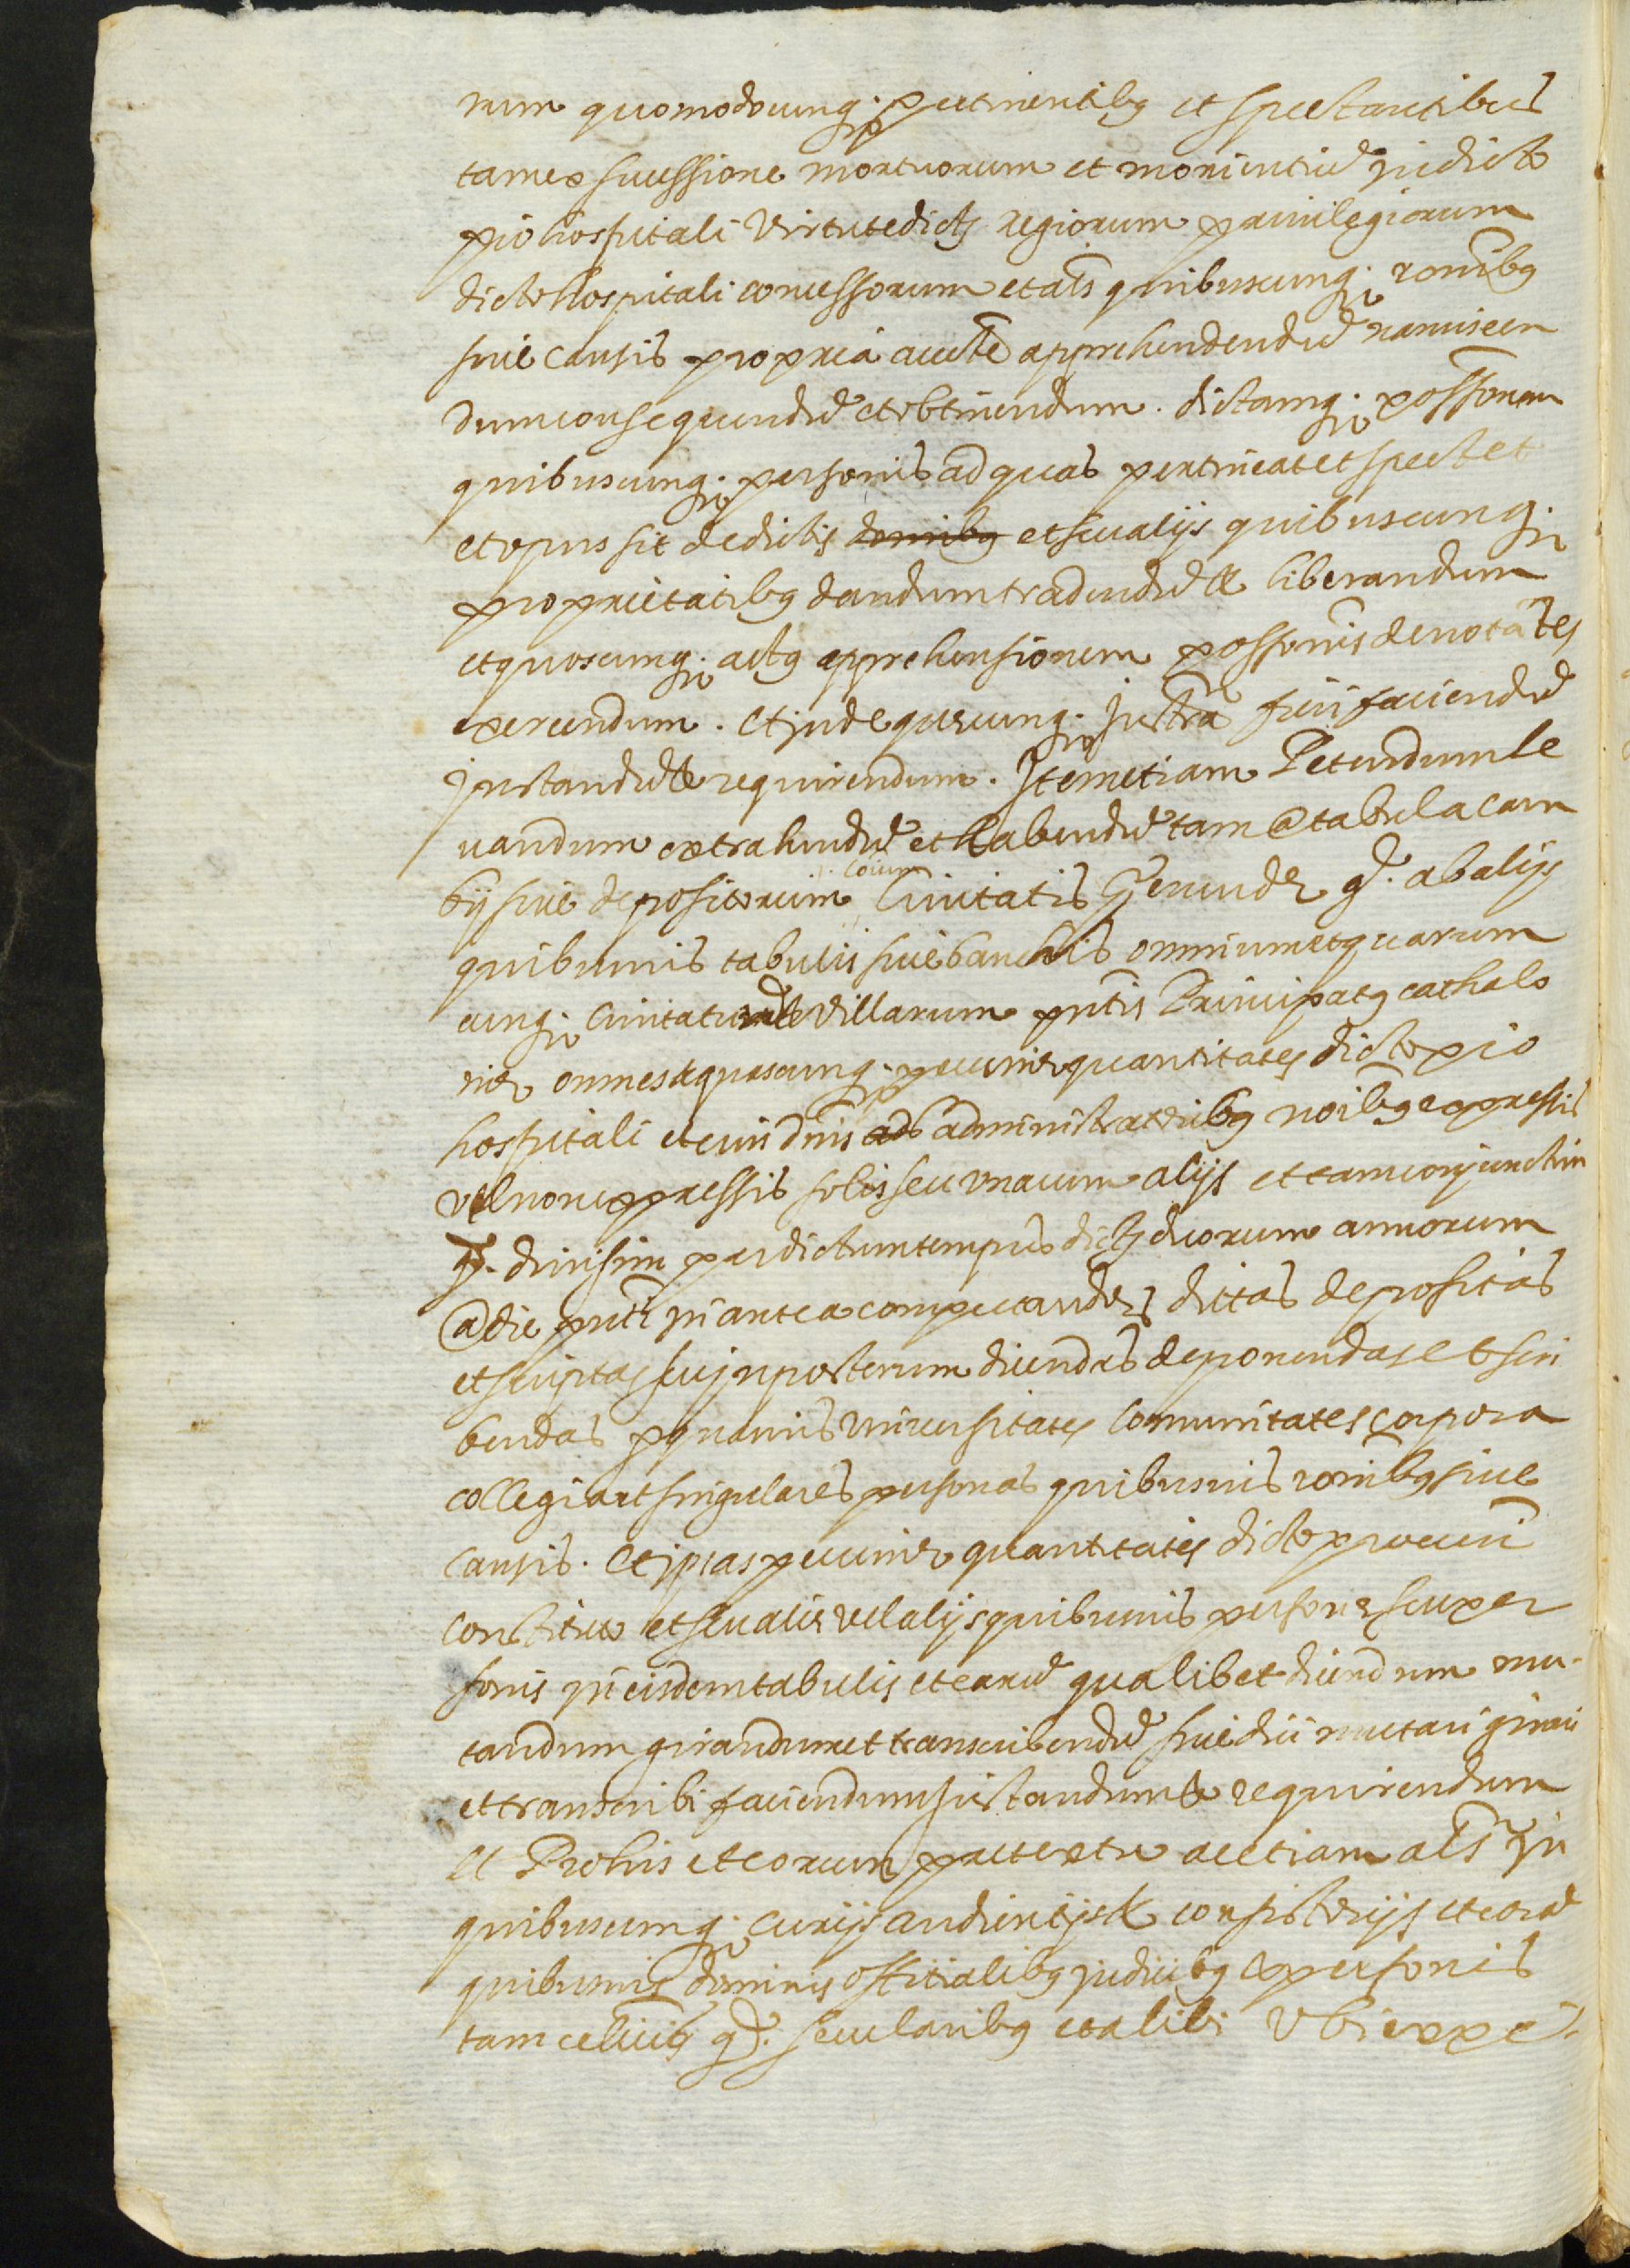 num quomodocunq. pertinentibq et spectantibus
tam ex successione mortuorum et morientiu in dicto
pio hospitali virtute dictoq regiorum priuilegiorum
dicto hospitali concessorum et als quibuscunq. ronibq
siue causis propria aucte apprehendendu nanciscen
dum consequendu et obtinendum. dictamq. possonem
quibuscunq. personis ad quas pertineat et spectet
et opus sit de dictis domibq et seu alijs quibuscunq.
proprietatibq dandum tradendu et liberandum
et quoscunq. actq apprehensionem possonis denotates
exercendum. Et inde quecunq. instra fieri faciendu
instandu et requirendum. Item etiam Petendum le
uandum extrahendu et habendu tam @ tabula cam
bij siue depositorum coium Ciuitatis Gerunde q. ab alijs
quibusuis tabulis siue banchis omnium et quarum
cunq. Ciuitatu et Villarum pntis Principatq Cathalo
nie omnes et quascunq. pecunie quantitates dicto pio
hospitali et eius dnis ads administratoribq noibq expressis
vel non expressis solis seu vna cum alijs et tam coniunctim
q. diuisim per dictum tempus dictoq duorum annorum
@ die pnti in antea computandoq dictas depositas
et scriptas seu in posterum dicendas deponendas et scri
bendas p quamuis vniuersitates comunitates corpora
collegia et singulares personas quibusuis ronibq siue
causis. Et ipsas pecunie quantitates dicto procuri
constituto et seu alie vel alijs quibusuis persone seu per
sonis in eisdem tabulis et earu qualibet dicendum mu-
tandum girandum et transcribendu siue dici mutari girari
et transcribi faciendum instandum et requirendum
Et Pro his et eorum pretextu ac etiam als in
quibuscunq. curijs audientijs et consistorijs et cora
quibusuis dominis officialibq iudicibq et personis
tam eccliticis q. secularibq et alibi Vbi expe-